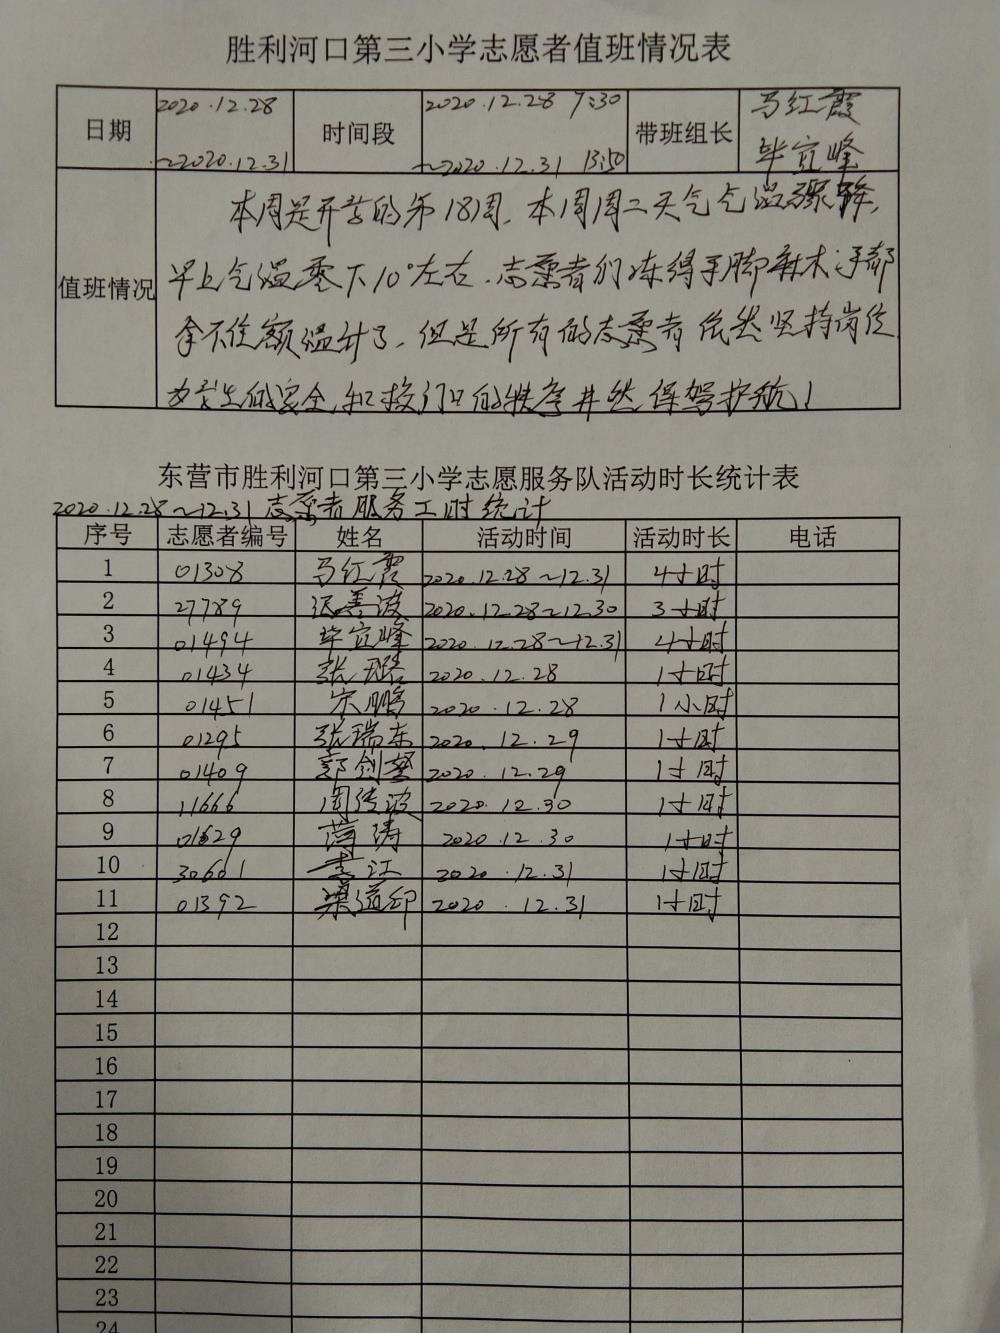 胜利河口第三小学志愿者值班情况表
日期 2020.12.28 ～2020.12.31 时间段 2020.12.28 7:30 ～2020.12.31 13:50 带班组长 马红霞 毕宜峰
值班情况
本周是开学的第18周，本周周二天气气温骤降，
早上气温零下10°左右，志愿者们冻得手脚麻木，手都
拿不住额温计了，但是所有的志愿者依然坚持岗位，
为学生的安全，和校门口的秩序井然保驾护航！
东营市胜利河口第三小学志愿服务队活动时长统计表
2020.12.28～12.31志愿者服务工时统计
序号 志愿者编号 姓名 活动时间 活动时长 电话
1 01308 马红霞 2020.12.28～12.31 4小时
2 27789 善波 2020.12.28～12.30 3小时
3 01494 毕宜峰 2020.12.28～12.31 4小时
4 01434 张璐 2020.12.28 1小时
5 01451 宋鹏 2020.12.28 1小时
6 01295 张瑞东 2020.12.29 1小时
7 01409 郭剑 2020.12.29 1小时
8 11666 周传波 2020.12.30 1小时
9 01629 涛 2020.12.30 1小时
10 30601 李江 2020.12.31 1小时
11 01392 渠道印 2020.12.31 1小时
12
13
14
15
16
17
18
19
20
21
22
23
24